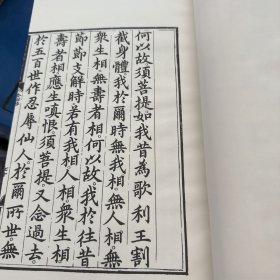 何以故須菩提如我昔為歌利王割
截身體我於爾時無我相無人相無
眾生相無壽者相何以故我於往昔
節節支解時若有我相人相眾生相
壽者相應生嗔恨須菩提又念過去
於五百世作忍辱仙人於爾所世無